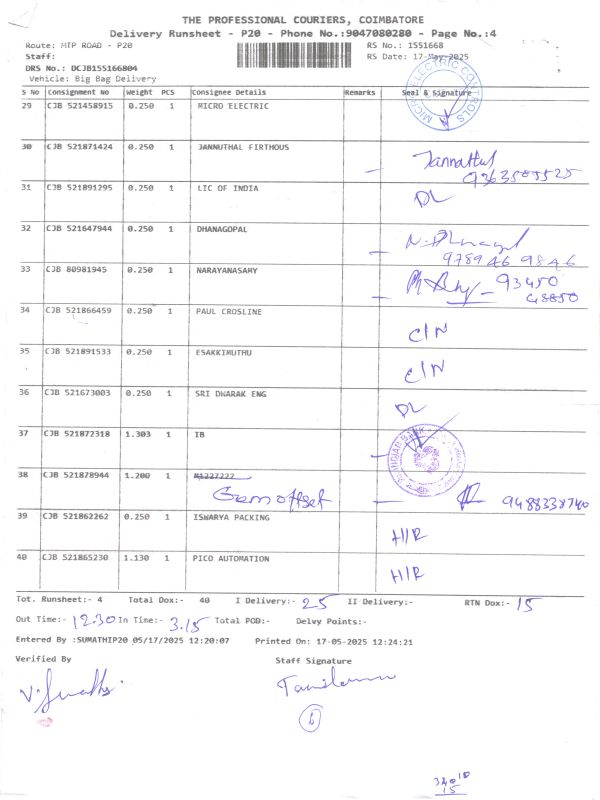 THE PROFESSIONAL COURIERS, COIMBATORE
Delivery Runsheet - P20 - Phone No.:9047080280 - Page No.:4
Route: MTP ROAD - P20 RS No.: 1551668
Staff: RS Date: 17-May-2025
DRS No.: DCJB155166804
Vehicle: Big Bag Delivery
S No Consignment No Weight PCS Consignee Details Remarks Seal & Signature
29 CJB 521458915 0.250 1 MICRO ELECTRIC
30 CJB 521871424 0.250 1 JANNUTHAL FIRTHOUS
Jannathul
9363585525
31 CJB 521891295 0.250 1 LIC OF INDIA DL
32 CJB 521647944 0.250 1 DHANAGOPAL
978946 9846
33 CJB 80981945 0.250 1 NARAYANASAMY
93450
48850
34 CJB 521866459 0.250 1 PAUL CROSLINE C/N
35 CJB 521891533 0.250 1 ESAKKIMUTHU C/N
36 CJB 521673003 0.250 1 SRI DWARAK ENG DL
37 CJB 521872318 1.303 1 IB
INDIAN BANK
38 CJB 521878944 1.200 1
Gem offset 9488338740
39 CJB 521862262 0.250 1 ISWARYA PACKING H/R
40 CJB 521865230 1.130 1 PICO AUTOMATION H/R
Tot. Runsheet:- 4 Total Dox:- 40 I Delivery:- 25 II Delivery:- RTN Dox:- 15
Out Time:- 12.30 In Time:- 3.15 Total POD:- Delvy Points:-
Entered By :SUMATHIP20 05/17/2025 12:20:07 Printed On: 17-05-2025 12:24:21
Verified By Staff Signature